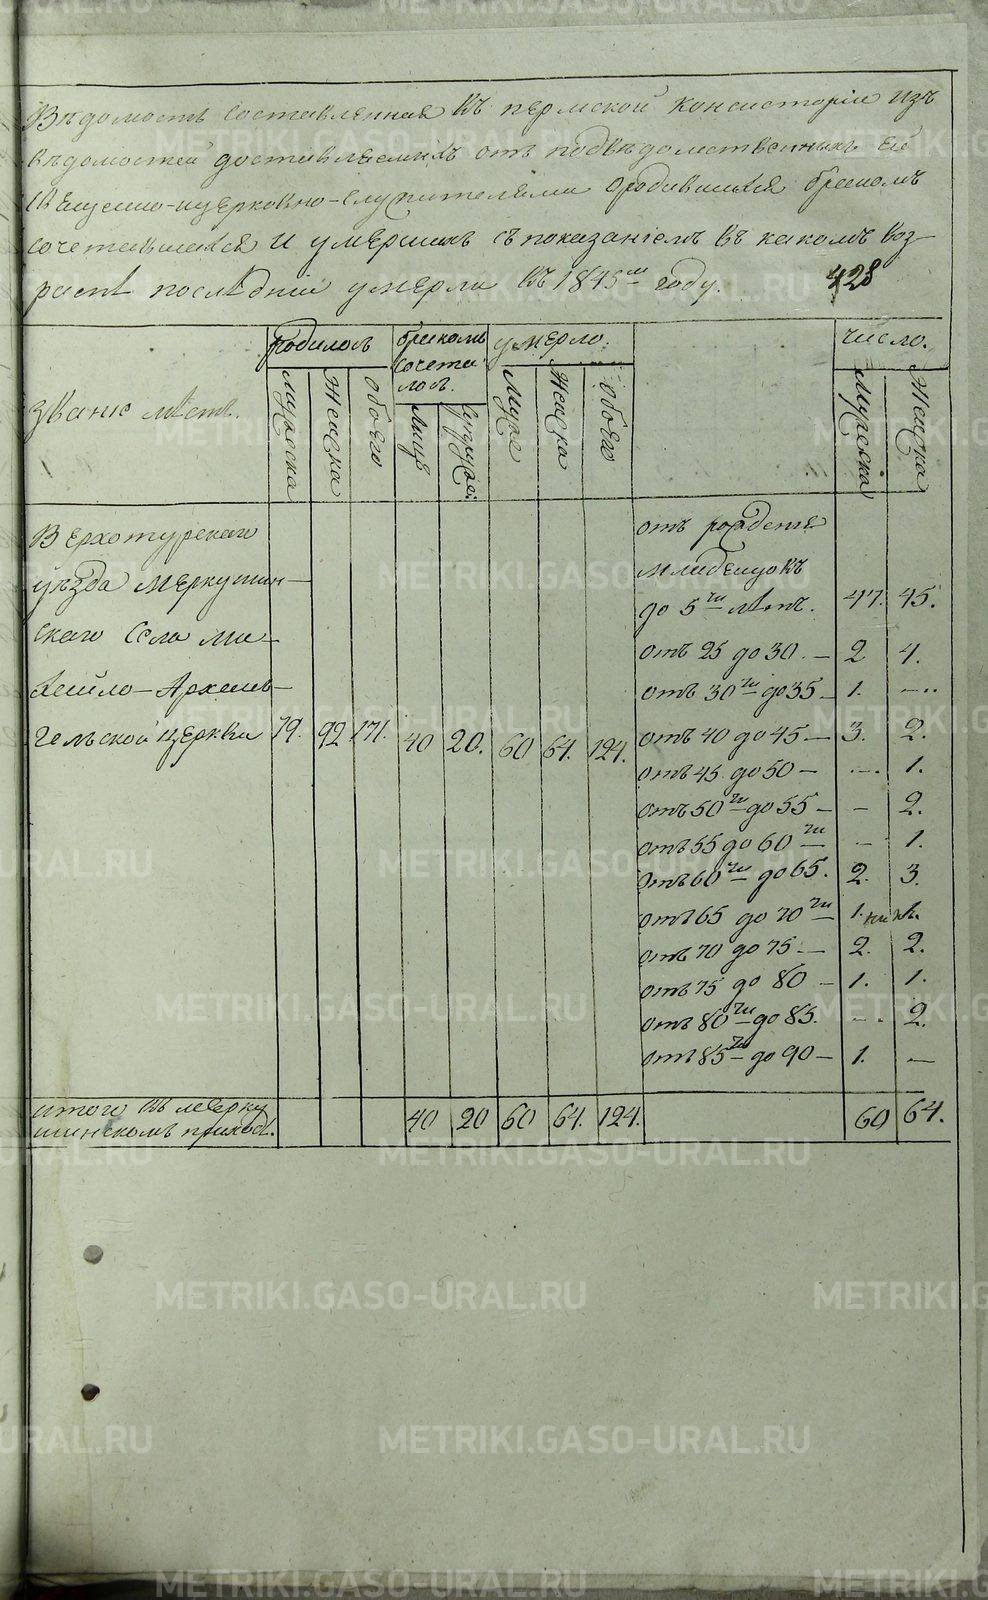 Вѣдомость составленная въ пермской консисторіи изъ
вѣдомостей доставляемыхъ отъ подвѣдомственныхъ ей
священно-церковно-служителями о родившихся бракомъ
сочетавшихся и умершихъ съ показаніемъ въ какомъ воз-
растѣ послѣдніи умерли въ 1845м году. 428
родилось бракомъ сочета лось. умерло. число.
званіе мѣстъ. мужеска женска обоего лицъ супруж: Муже Женска обоего Мужеска Женска
Верхотурскаго отъ рожденія
уѣзда Меркушин- младенцокъ
до 5ти лѣтъ. 47. 45.
скаго Села ми-
отъ 25 до 30. — 2 4.
хайло-Архан- отъ 30ти до 35 — 1. —..
гельской церкви 79. 92 171. 40 20. 60 64. 124. отъ 40 до 45 — 3. 2.
отъ 45 до 50 — —. 1.
отъ 50ти до 55 — — 2.
отъ 55 до 60ти — 1.
отъ 60ти до 65. 2. 3.
отъ 65 до 70ти 1. 1.
отъ 70 до 75 — 2. 2.
отъ 75 до 80 — 1. 1.
отъ 80ти до 85. —. 2.
отъ 85ти до 90 — 1. —
итого въ мерку
шинскомъ приходѣ. 40 20 60 64. 124. 60 64.
METRIKI.GASO-URAL.RU